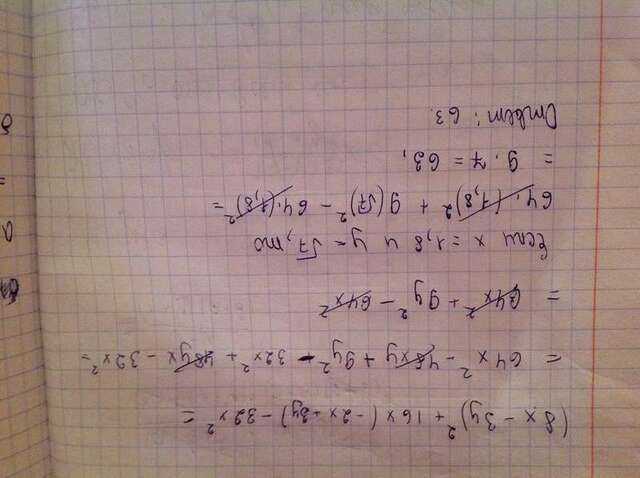 (8x - 3y)² + 16x (-2x + 3y) - 32x² =
= 64x² - 48xy + 9y² - 32x² + 48yx - 32x² =
= 64x² + 9y² - 64x²
Если x = 1,8 и y = √7, то
64 · (1,8)² + 9 (√7)² - 64 · (1,8)² =
= 9 · 7 = 63,
Ответ: 63.